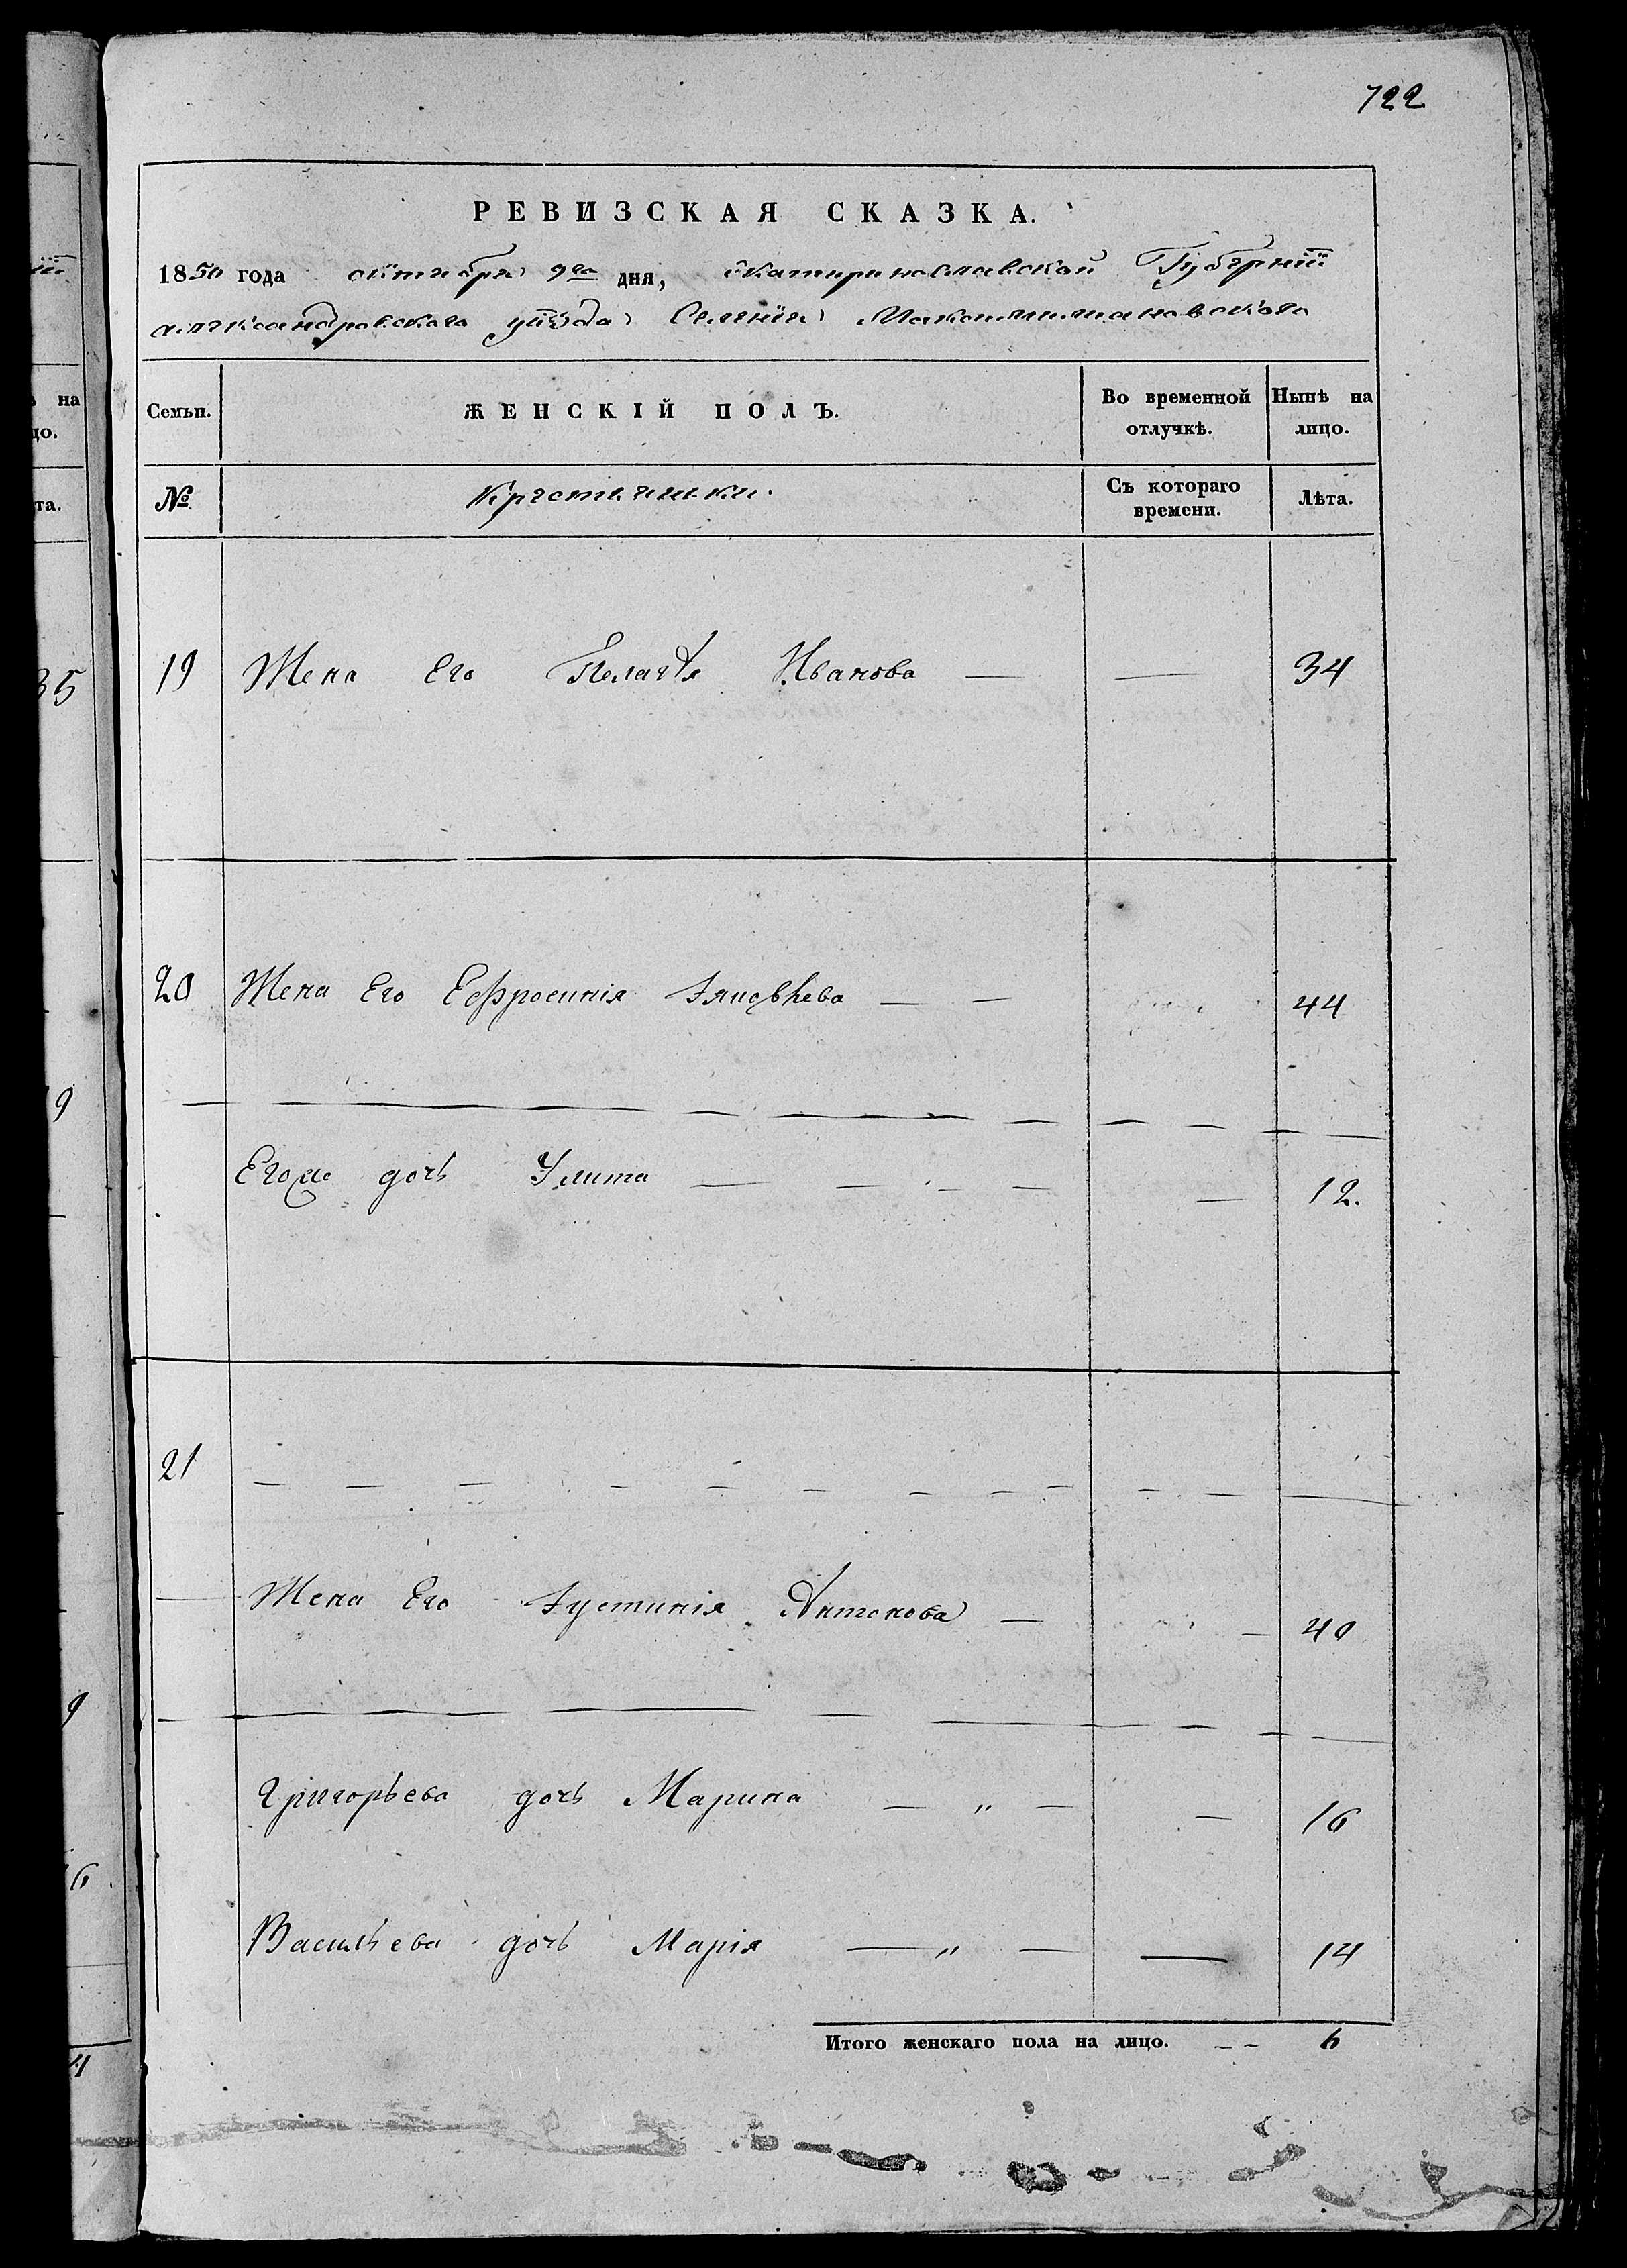 722
РЕВИЗСКАЯ СКАЗКА.
1850 года октября 9го дня, Екатеринославской Губернiи
Александровского уѣзда Селенiя
Семьи. ЖЕНСКІЙ ПОЛЪ. Во временной отлучкѣ. Нынѣ на лицо.
№ Крестьянки. Съ котораго времени. Лѣта.
19 Жена Его Пелагѣя Иванова — — 34
20 Жена Его Ефросинiя — — 44
Егоже дочь Улита — — — — — 12.
21
Жена Его Iустинiя Антонова — — 40
Григорьева дочь Марина — " — — 16
Васильева дочь Марiя — " — — 14
Итого женскаго пола на лицо. — — 6
на
цо.
та.
35
9
9
6